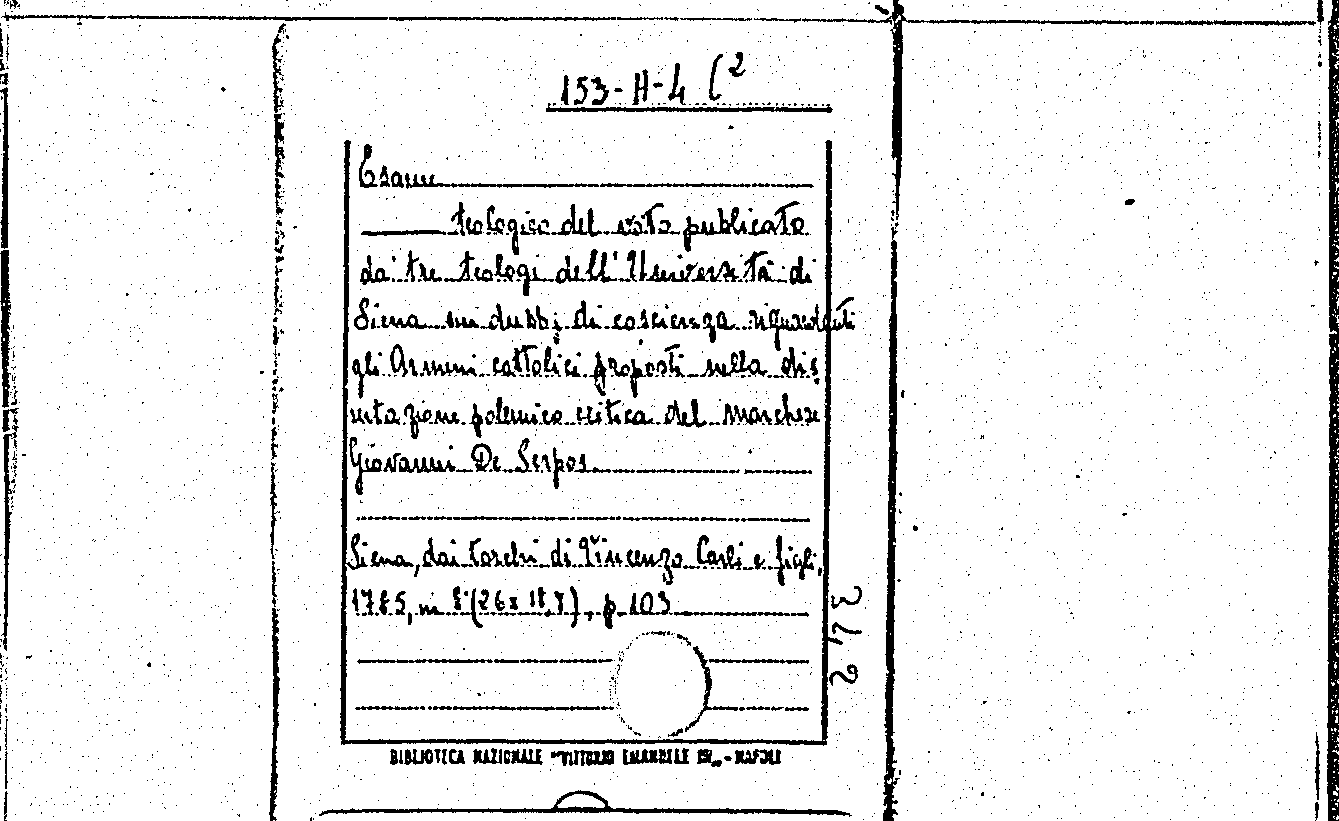 153-H-4 (2
Esame
teologico del voto publicato
da' tre teologi dell'Università di
Siena sui dubbi di coscienza riguardanti
gli Armeni cattolici proposti nella dis
sertazione polemico critica del Marchese
Giovanni De Serpos
Siena, dai torchi di Vincenzo Carli e figli,
1785, in 8°(26x18,8), p. 103
342
BIBLIOTECA NAZIONALE "VITTORIO EMANUELE III" - NAPOLI